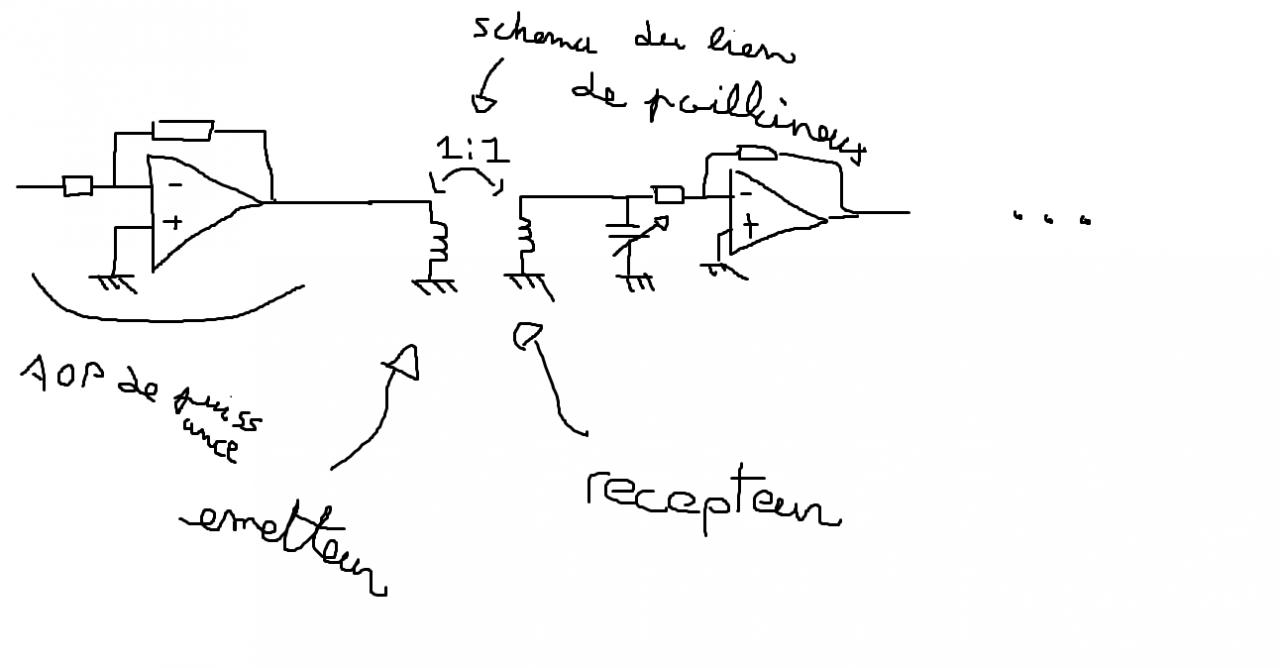 schema du lien
de poilkineux
1:1
-
+
-
+
AOP de puiss
ance
emetteur
recepteur
...